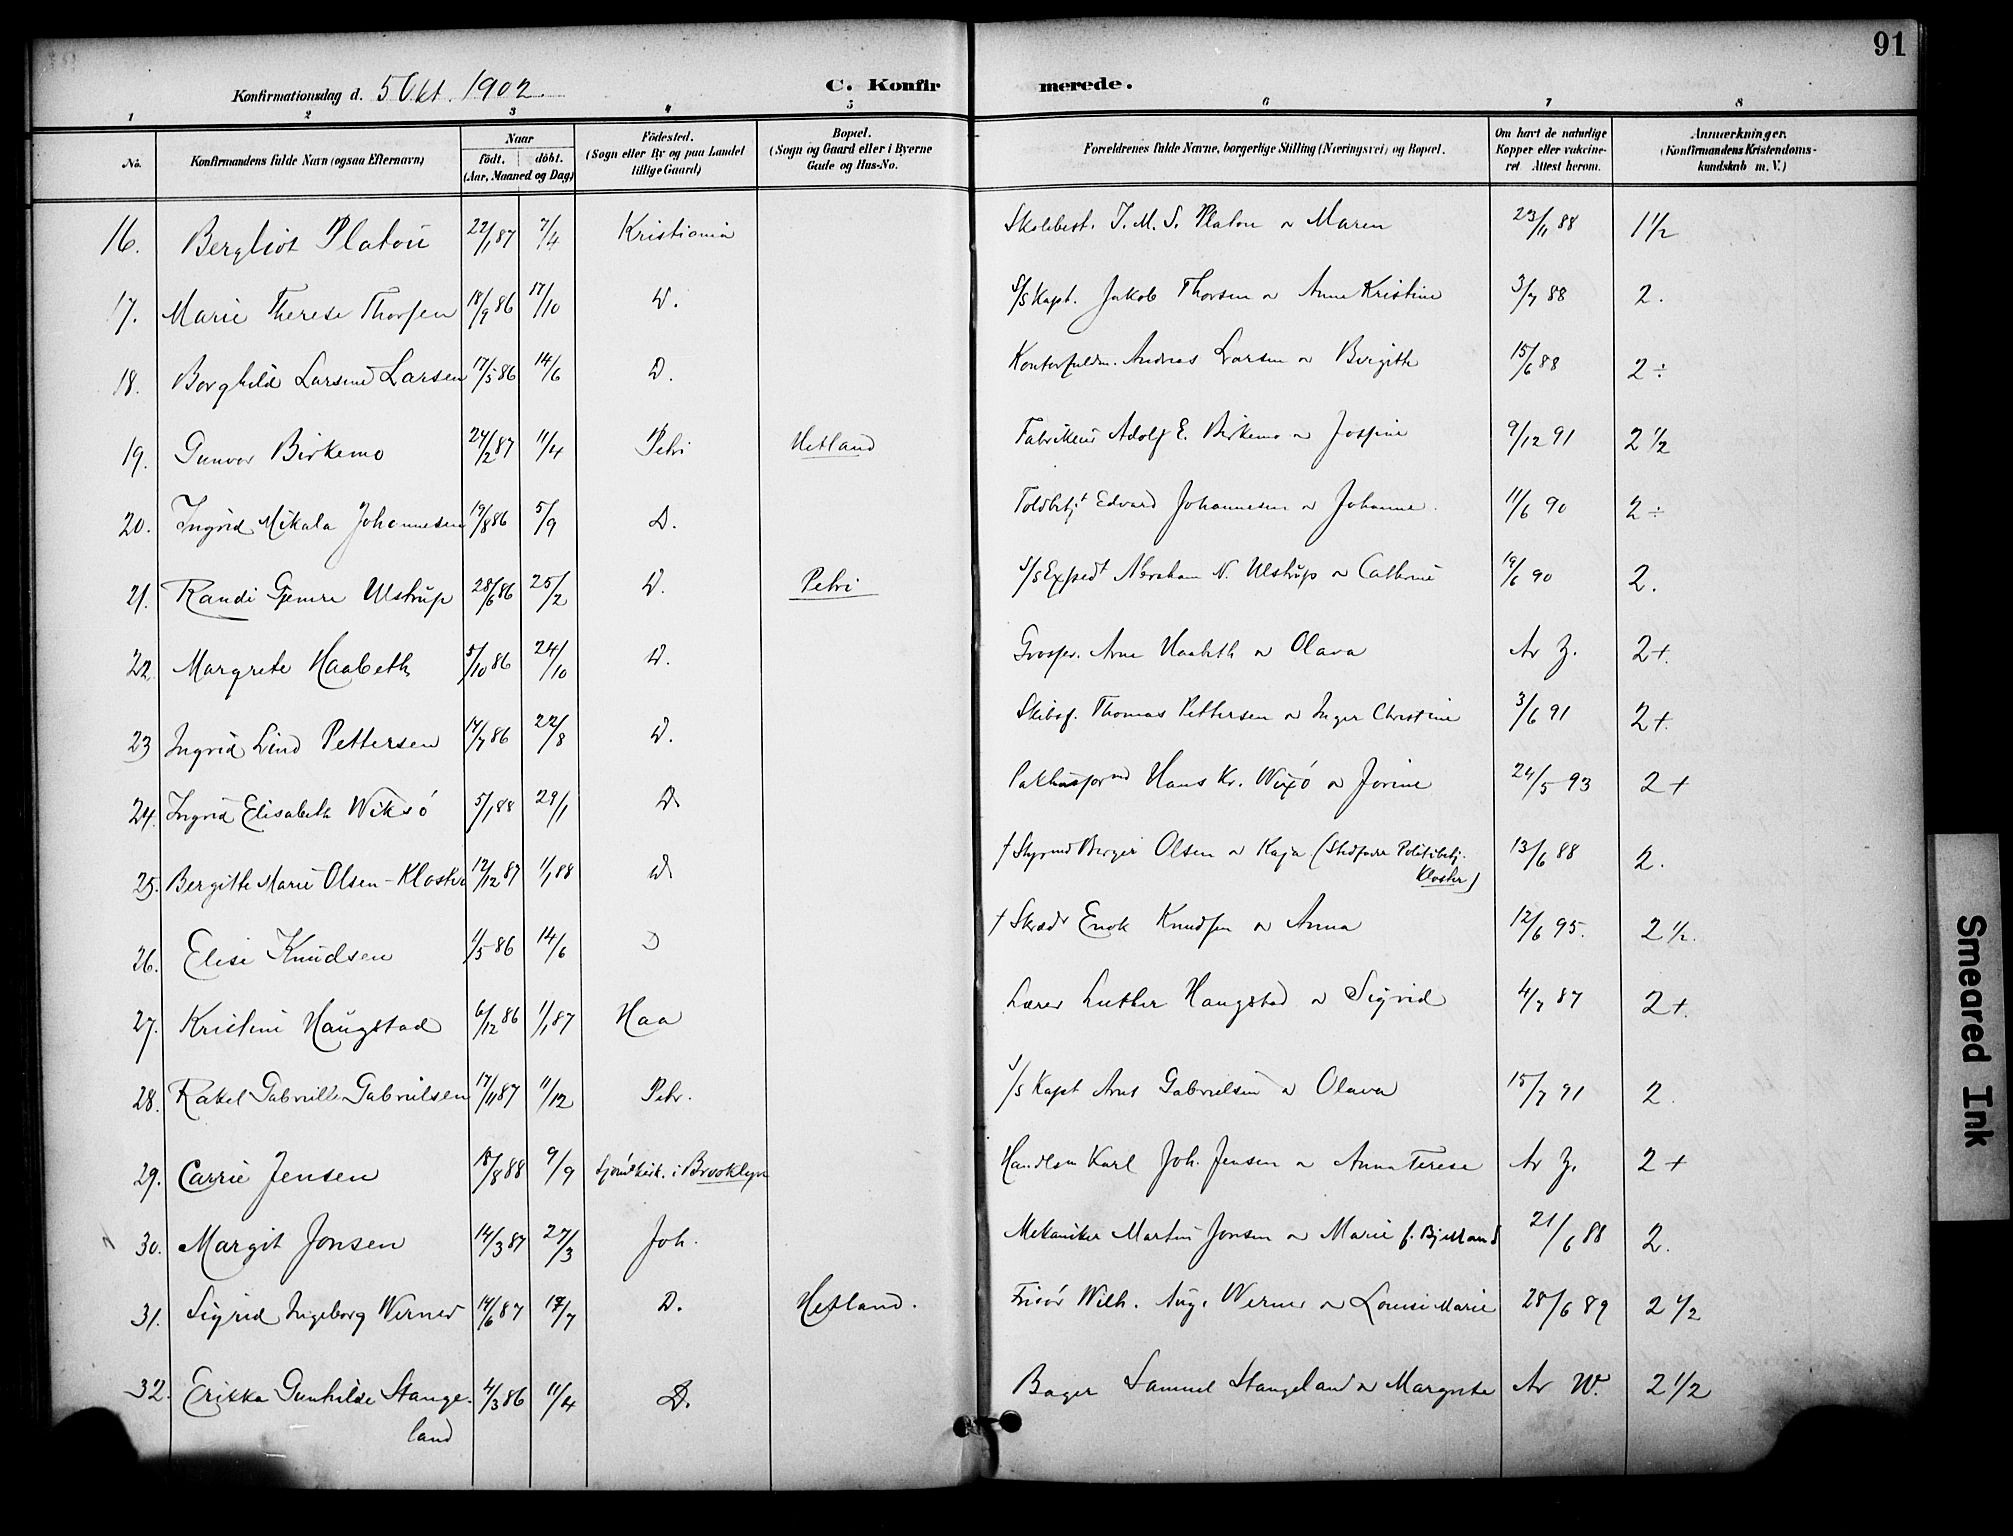 91
Konfirmationsdag d. 5 Okt. 1902.
C. Konfirmerede.
1 2 3 4 5 6 7 8
No. Konfirmandens fulde Navn (ogsaa Efternavn) Naar födt. döbt. (Aar, Maaned og Dag) Födested. (Sogn eller By og paa Landet tillige Gaard) Bopæl. (Sogn og Gaard eller i Byerne Gade og Hus-No. Forældrenes fulde Navne, borgerlige Stilling (Næringsvei) og Bopæl. Om havt de naturlige Kopper eller vakcineret Attest herom. Anmærkninger. (Konfirmandens Kristendomskundskab m. V.)
16. Bergliot Platou 22/1 87 7/4 Kristiania Skolebest. J. M. S. Platou o Maren 23/11 88 1 1/2
17. Marie Therese Thorsen 18/9 86 17/10 D. S/S Kapt. Jakob Thorsen o Anne Kristine 3/7 88 2.
18. Borghild Larsine Larsen 17/5 86 14/6 D. Kontorfuldm. Andreas Larsen o Bergithe 15/6 88 2 ÷
19. Gunvor Birkemo 24/2 87 11/4 Petri Hetland Adolf E. Birkemo o Josfine 9/12 91 2 1/2
20. Ingrid Mikala Johannesen 19/8 86 5/9 D. Toldbetjt Edvard Johannesen o Johanne. 11/6 90 2 ÷
21. Randi Gjemre Ulstrup 28/6 86 25/2 D. Petri S/S Expedt Abraham N. Ulstrup o Cathrine 19/6 90 2.
22. Margrete Haabeth 5/10 86 24/10 D. Grosser. Arne Haabeth o Olava Av Z. 2+.
23 Ingrid Lind Pettersen 17/7 86 22/8 D. Skibsf. Thomas Pettersen o Inger Christine 3/6 91 2+.
24. Ingrid Elisabeth Wiksö 5/1 88 29/1 D. Pakhusformd Hans Kr. Wixö o Jorine 24/5 93 2 +
25. Bergithe Marie Olsen-Kloster 12/12 87 1/1 88 D. † Styrmd Berger Olsen o Kaja (Stedfader Politibetj. Kloster) 13/6 88 2.
26. Elise Knudsen 1/5 86 14/6 D † Skrædr Enok Knudsen o Anna 12/6 95. 2 1/2.
27. Kristine Haugstad 6/12 86 1/1 87 Haa Lærer Luther Haugstad o Sigrid 4/7 87 2+.
28. Rakel Gabrielle Gabrielsen 17/11 87 11/12 Petr. S/S Kapt Arns Gabrielsen o Olava 15/7 91 2.
29. Carrie Jensen 18/8 88 9/9 Sjömdkirk. i Brooklyn Handlsm Karl Joh. Jensen o Anna Terese Av Z. 2 +
30. Margit Jonsen 14/3 87 27/3 Joh. Mekaniker Martin Jonsen o Marie f. Bjelland 21/6 88 2.
31. Sigrid Ingeborg Werner 14/6 87 17/7 D. Hetland. Frisör Wilh. Aug. Werner o Louise Marie 28/6 89 2 1/2
32. Erikka Gunhilde Stangeland 4/3 86 11/4 D. Bager Samuel Stangeland o Margrete Av W. 2 1/2
Smeared Ink